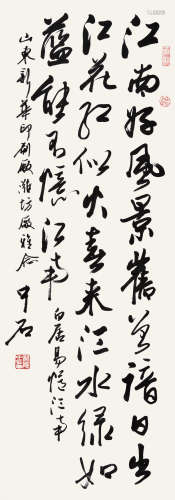 江南好风景旧曾谙日出
江花红似火春来江水绿如
蓝能不忆江南 白居易忆江南
山东新华印刷厂潍坊厂雅念
中石